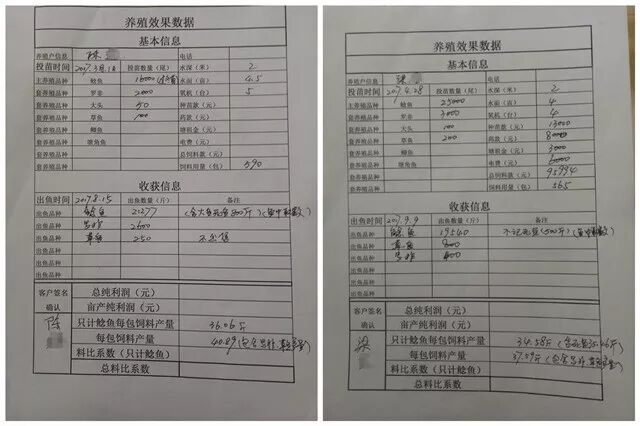 养殖效果数据
基本信息
养殖户信息 陈 电话
投苗时间 2017.3月.18 投苗数量（尾） 水深（米） 2
主养殖品种 鲶鱼 16000 水面（亩） 4.5
套养殖品种 罗非 2000 氧机（台） 5
套养殖品种 大头 50 种苗款（元）
套养殖品种 草鱼 100 药款（元）
套养殖品种 鲫鱼 塘租金（元）
套养殖品种 塘角鱼 电费（元）
套养殖品种 总饲料款（元）
套养殖品种 饲料用量（包） 590
收获信息
出鱼时间 2017.8.15 出鱼数量（斤） 备注
出鱼品种 鲶鱼 21277
出鱼品种 罗非 2600
出鱼品种 草鱼 250
出鱼品种
出鱼品种
出鱼品种
出鱼品种
客户签名 总纯利润（元）
确认 亩产纯利润（元）
陈 只计鲶鱼每包饲料产量 36.06斤
每包饲料产量 40.89
料比系数（只计鲶鱼）
总料比系数
养殖效果数据
基本信息
养殖户信息 电话
投苗时间 2017.4.28 投苗数量（尾） 水深（米） 2
主养殖品种 鲶鱼 25000 水面（亩） 4
套养殖品种 罗非 3000 氧机（台） 4
套养殖品种 大头 100 种苗款（元） 13000
套养殖品种 草鱼 200 药款（元） 8000
套养殖品种 鲫鱼 塘租金（元） 3000
套养殖品种 塘角鱼 电费（元） 6000
套养殖品种 总饲料款（元） 95994
套养殖品种 饲料用量（包） 565
收获信息
出鱼时间 2017.9.9 出鱼数量（斤） 备注
出鱼品种 鲶鱼 19540
出鱼品种 草鱼 800
出鱼品种 罗非 400
出鱼品种
出鱼品种
出鱼品种
出鱼品种
客户签名 总纯利润（元）
确认 亩产纯利润（元）
梁 只计鲶鱼每包饲料产量 34.58斤
每包饲料产量 37.59斤
料比系数（只计鲶鱼）
总料比系数